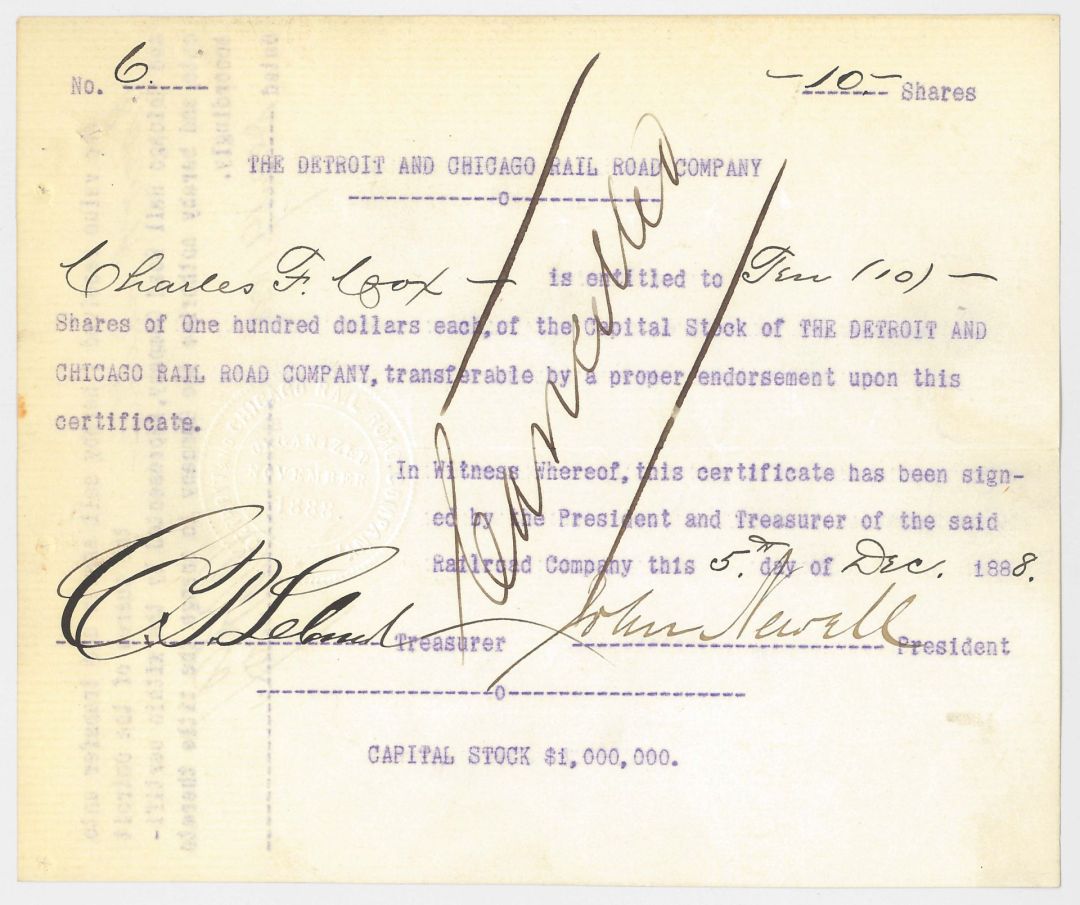 No. 6. -10.- Shares
THE DETROIT AND CHICAGO RAIL ROAD COMPANY
Charles F. Cox — is entitled to Ten (10) —
Shares of One hundred dollars each, of the Capital Stock of THE DETROIT AND
CHICAGO RAIL ROAD COMPANY, transferable by a proper endorsement upon this
certificate.
In Witness Whereof, this certificate has been sign-
ed by the President and Treasurer of the said
Railroad Company this 5.th day of Dec. 1888.
Treasurer John Newell President
CAPITAL STOCK $1,000,000.
Cancelled
CHICAGO RAIL ROAD COMPANY
ORGANIZED
NOVEMBER
1888